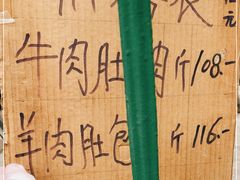 元
牛肉肚肉斤108.-
羊肉肚包斤116.-